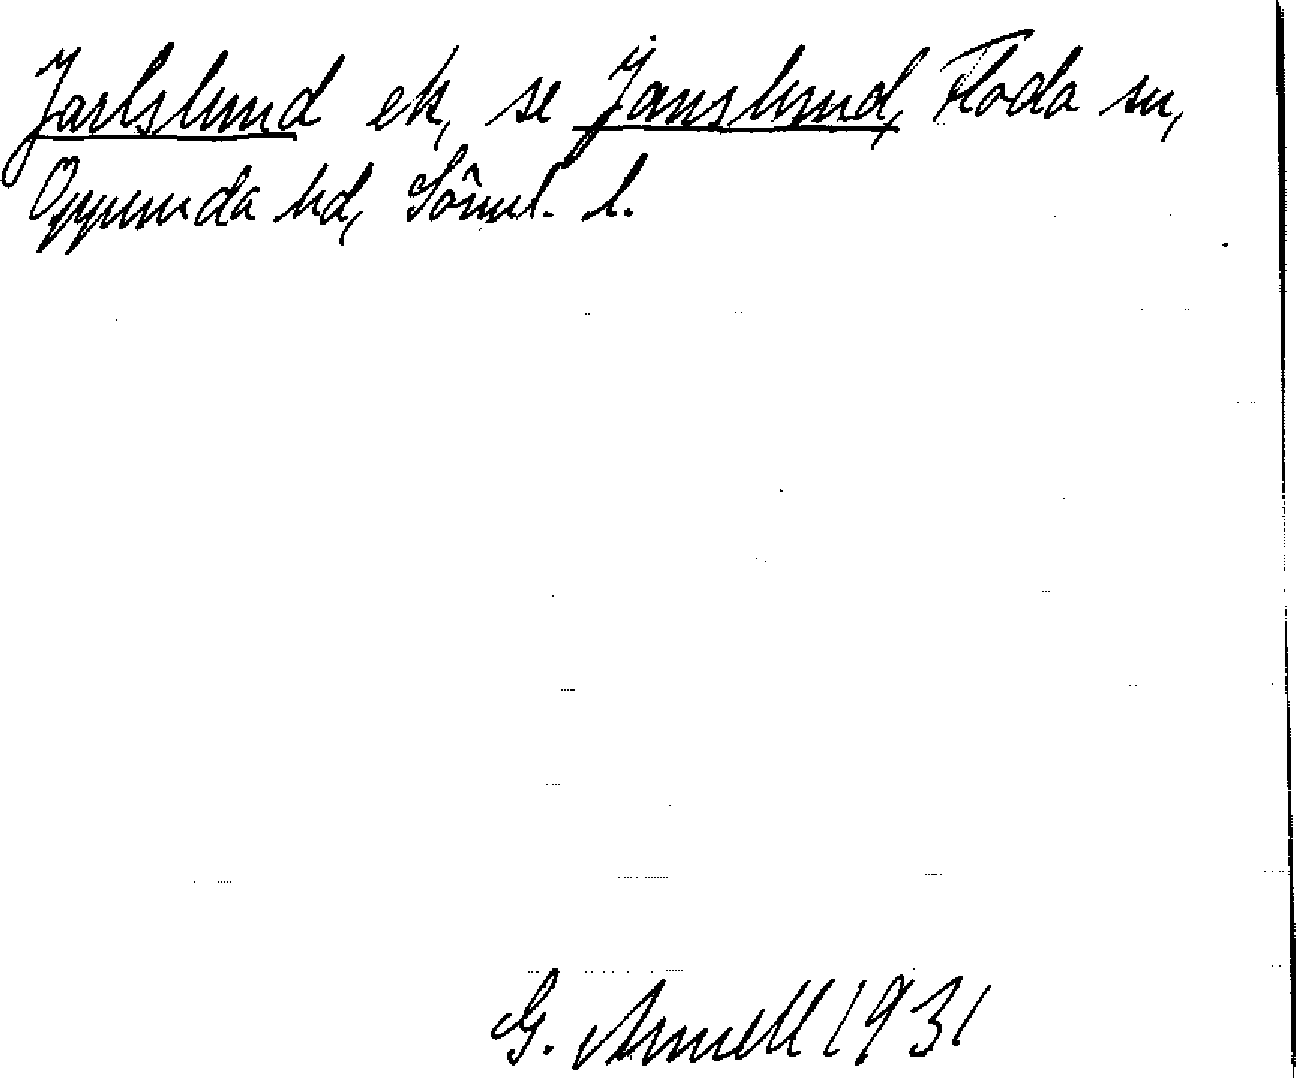 Jarlslund ek, se Janslund, Floda sn,
Oppunda hd, Söml. l.
G. Arnell 1931